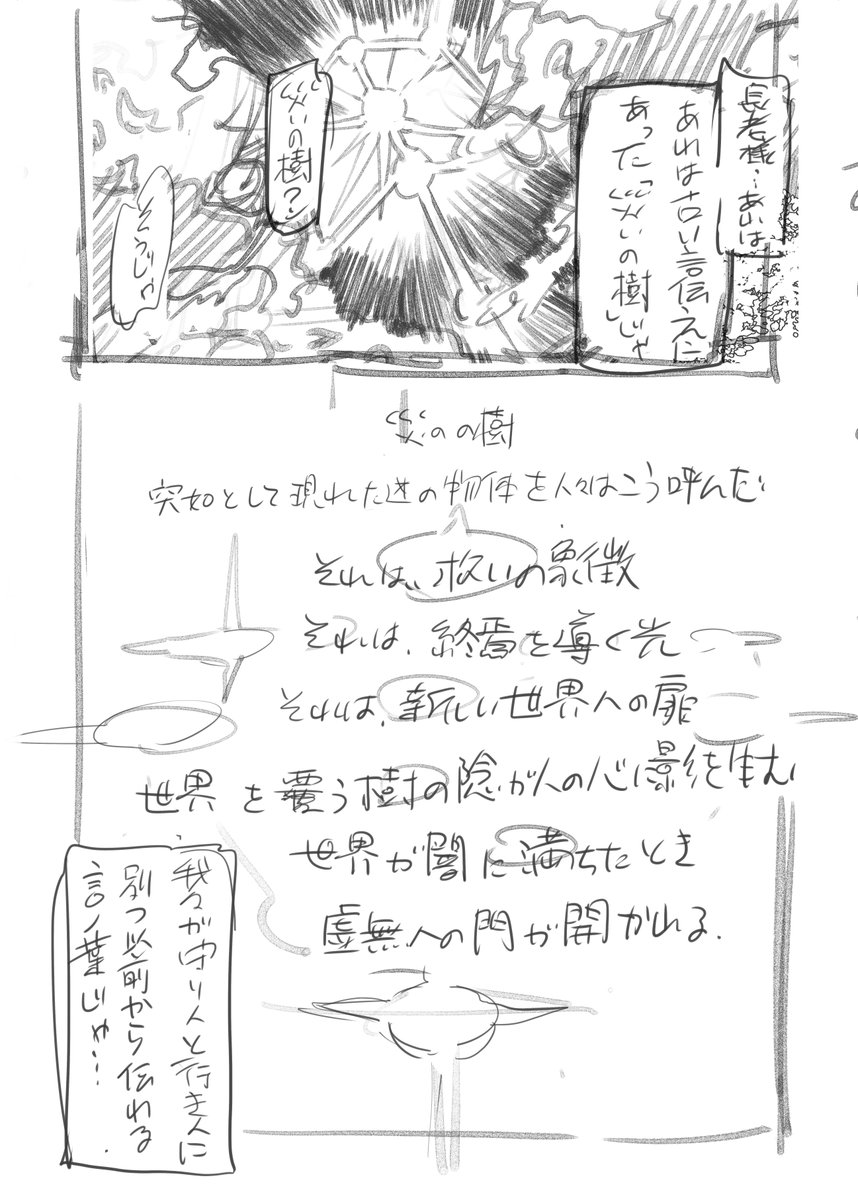 長老様…あれは
あれは古い言伝えに
あった「災いの樹」じゃ
"災いの樹?"
そうじゃ
災のの樹
突如として現れた逆の物体を人々はこう呼んだ
それは、救いの象徴
それは、終焉を導く光
それは、新しい世界への扉
世界を覆う樹の陰が人の心に影を生む
世界が闇に満ちたとき
虚無への門が開かれる.
我々が守り人と行き人に
別つ以前から伝わる
言ノ葉じゃ…